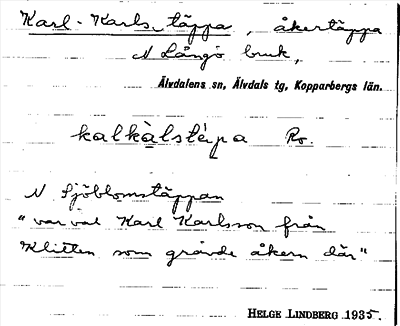 Karl-Karls täppa, åkertäppa
N Långö bruk,
Älvdalens sn, Älvdals tg, Kopparbergs län.
kalkàlstépa Ro.
N Sjöblomstäppan
"var val Karl Karlsson från
Klitten som gravde åkern där"
HELGE LINDBERG 1935.